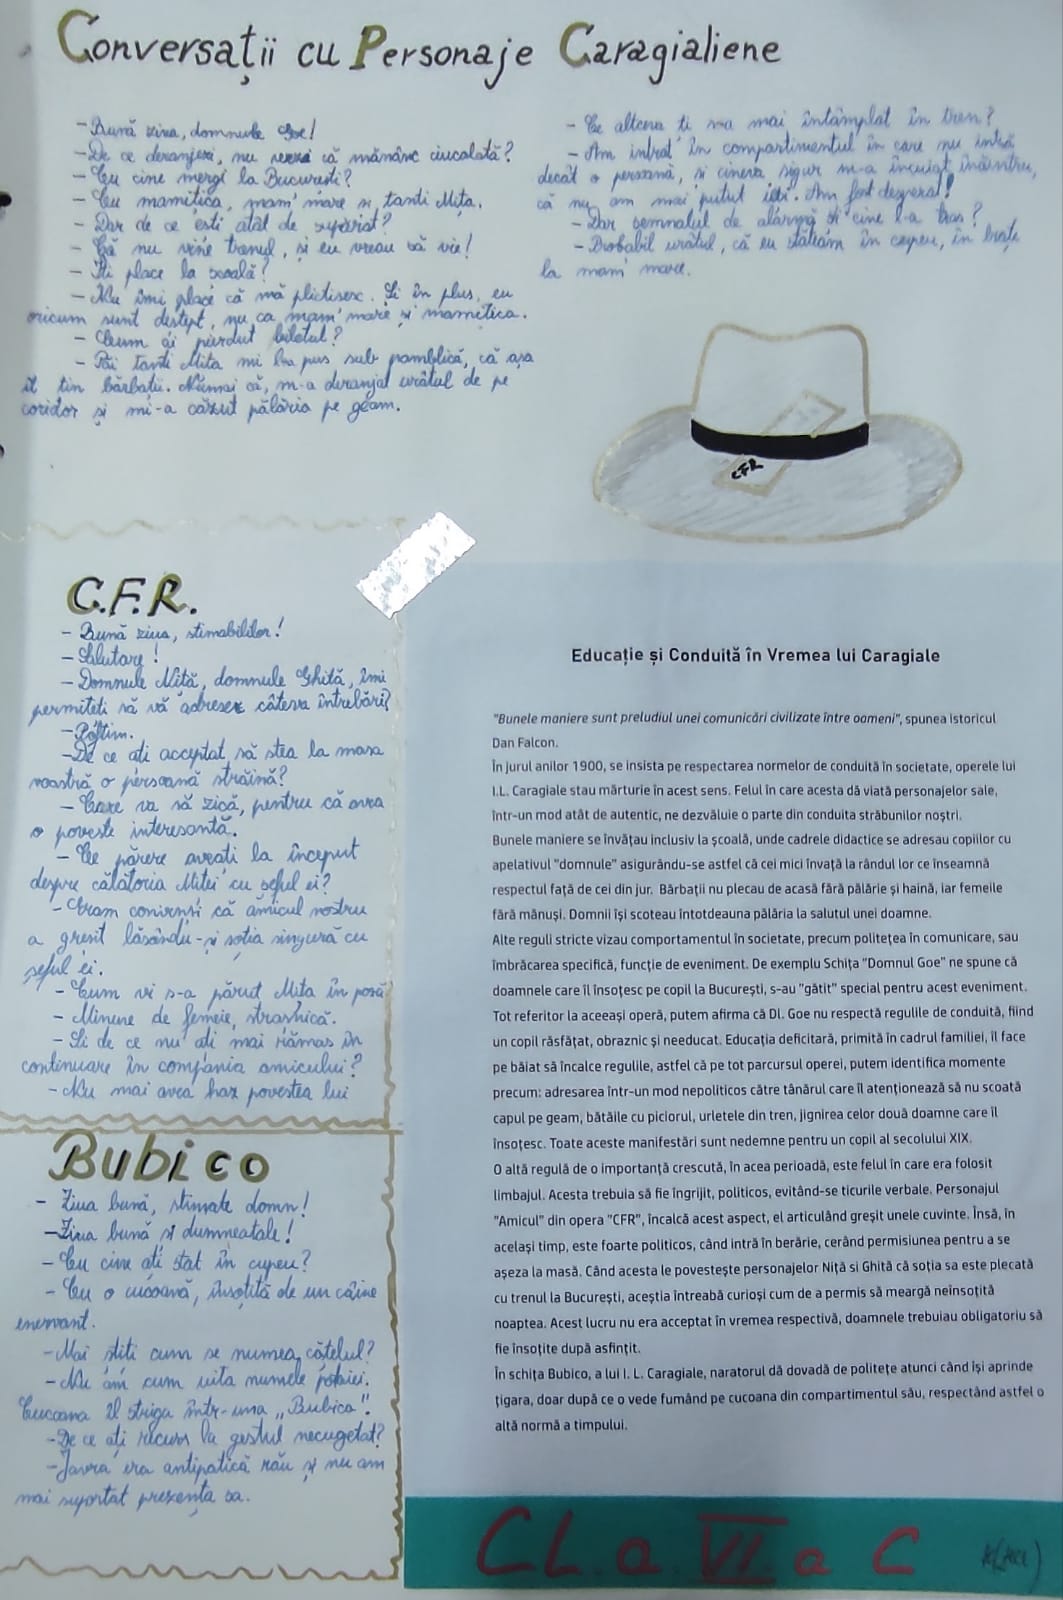 Conversații cu Personaje Caragialiene
- Bună ziua, domnule Goe!
- De ce deranjezi, nu vezi că mănânc ciucalată?
- Cu cine mergi la București?
- Cu mamițica, mam' mare și tanti Mița.
- Dar de ce ești atât de supărat?
- Că nu vine trenul, și eu vreau să vie!
- Îți place la școală?
- Nu îmi place că mă plictisesc. Și în plus, eu
oricum sunt deștept, nu ca mam' mare și mamițica.
- Cum ai pierdut biletul?
- Păi tanti Mița mi l-a pus sub pamblică, că așa
îl țin bărbații. Numai că, m-a deranjat urâtul de pe
coridor și mi-a căzut pălăria pe geam.
- Ce altceva ți s-a mai întâmplat în tren?
- Am intrat în compartimentul în care nu intră
decât o persoană, și cineva sigur m-a încuiat înăuntru,
că nu am mai putut ieși. Am fost degeaba!
- Dar semnalul de alarmă și cine l-a tras?
- Probabil urâtul, că eu stăteam în cupeu, în brațe
la mam' mare.
CFR
C.F.R.
- Bună ziua, stimabililor!
- Salutare!
- Domnule Niță, domnule Ghiță, îmi
permiteți să vă adresez câteva întrebări?
- Poftim.
- De ce ați acceptat să stea la masa
voastră o persoană străină?
- Care va să zică, pentru că avea
o poveste interesantă.
- Ce părere aveați la început
despre călătoria Miței cu șeful ei?
- Eram convinși că amicul nostru
a greșit lăsându-și soția singură cu
șeful ei.
- Cum vi s-a părut Mița în poză
- Minune de femeie, strașnică.
- Și de ce nu ați mai rămas în
continuare în compania amicului?
- Nu mai avea haz povestea lui
Bubico
- Ziua bună, stimate domn!
- Ziua bună și dumneatale!
- Cu cine ați stat în cupeu?
- Cu o cucoană, însoțită de un câine
enervant.
- Mai știți cum se numea cățelul?
- Nu am cum uita numele potăiei.
Cucoana îl striga într-una „Bubico".
- De ce ați recurs la gestul necugetat?
- Javra era antipatică rău și nu am
mai suportat prezența sa.
Educație și Conduită în Vremea lui Caragiale
"Bunele maniere sunt preludiul unei comunicări civilizate între oameni", spunea istoricul
Dan Falcon.
În jurul anilor 1900, se insista pe respectarea normelor de conduită în societate, operele lui
I.L. Caragiale stau mărturie în acest sens. Felul în care acesta dă viată personajelor sale,
într-un mod atât de autentic, ne dezvăluie o parte din conduita străbunilor noștri.
Bunele maniere se învățau inclusiv la școală, unde cadrele didactice se adresau copiilor cu
apelativul "domnule" asigurându-se astfel că cei mici învață la rândul lor ce înseamnă
respectul față de cei din jur. Bărbații nu plecau de acasă fără pălărie și haină, iar femeile
fără mănuși. Domnii își scoteau întotdeauna pălăria la salutul unei doamne.
Alte reguli stricte vizau comportamentul în societate, precum politețea în comunicare, sau
îmbrăcarea specifică, funcție de eveniment. De exemplu Schița "Domnul Goe" ne spune că
doamnele care îl însoțesc pe copil la București, s-au "gătit" special pentru acest eveniment.
Tot referitor la aceeași operă, putem afirma că Dl. Goe nu respectă regulile de conduită, fiind
un copil răsfățat, obraznic și needucat. Educația deficitară, primită în cadrul familiei, îl face
pe băiat să încalce regulile, astfel că pe tot parcursul operei, putem identifica momente
precum: adresarea într-un mod nepoliticos către tânărul care îl atenționează să nu scoată
capul pe geam, bătăile cu piciorul, urletele din tren, jignirea celor două doamne care îl
însoțesc. Toate aceste manifestări sunt nedemne pentru un copil al secolului XIX.
O altă regulă de o importanță crescută, în acea perioadă, este felul în care era folosit
limbajul. Acesta trebuia să fie îngrijit, politicos, evitând-se ticurile verbale. Personajul
"Amicul" din opera "CFR", încalcă acest aspect, el articulând greșit unele cuvinte. Însă, în
același timp, este foarte politicos, când intră în berărie, cerând permisiunea pentru a se
așeza la masă. Când acesta le povestește personajelor Niță si Ghită că soția sa este plecată
cu trenul la București, aceștia întreabă curioși cum de a permis să meargă neînsoțită
noaptea. Acest lucru nu era acceptat în vremea respectivă, doamnele trebuiau obligatoriu să
fie însoțite după asfințit.
În schița Bubico, a lui I. L. Caragiale, naratorul dă dovadă de politețe atunci când își aprinde
țigara, doar după ce o vede fumând pe cucoana din compartimentul său, respectând astfel o
altă normă a timpului.
CL. a VI a C